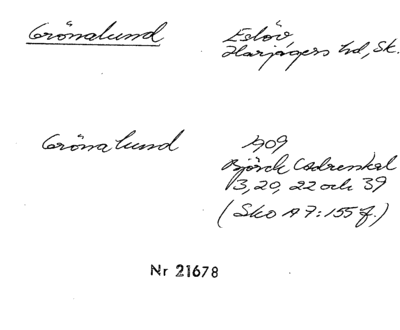 Grönalund
Eslöv
Harjagers hd, Sk.
Grönalund
1909
Björck Cadrenkal
3, 20, 22 och 39
(Sko A 7:155 f.)
Nr 21678